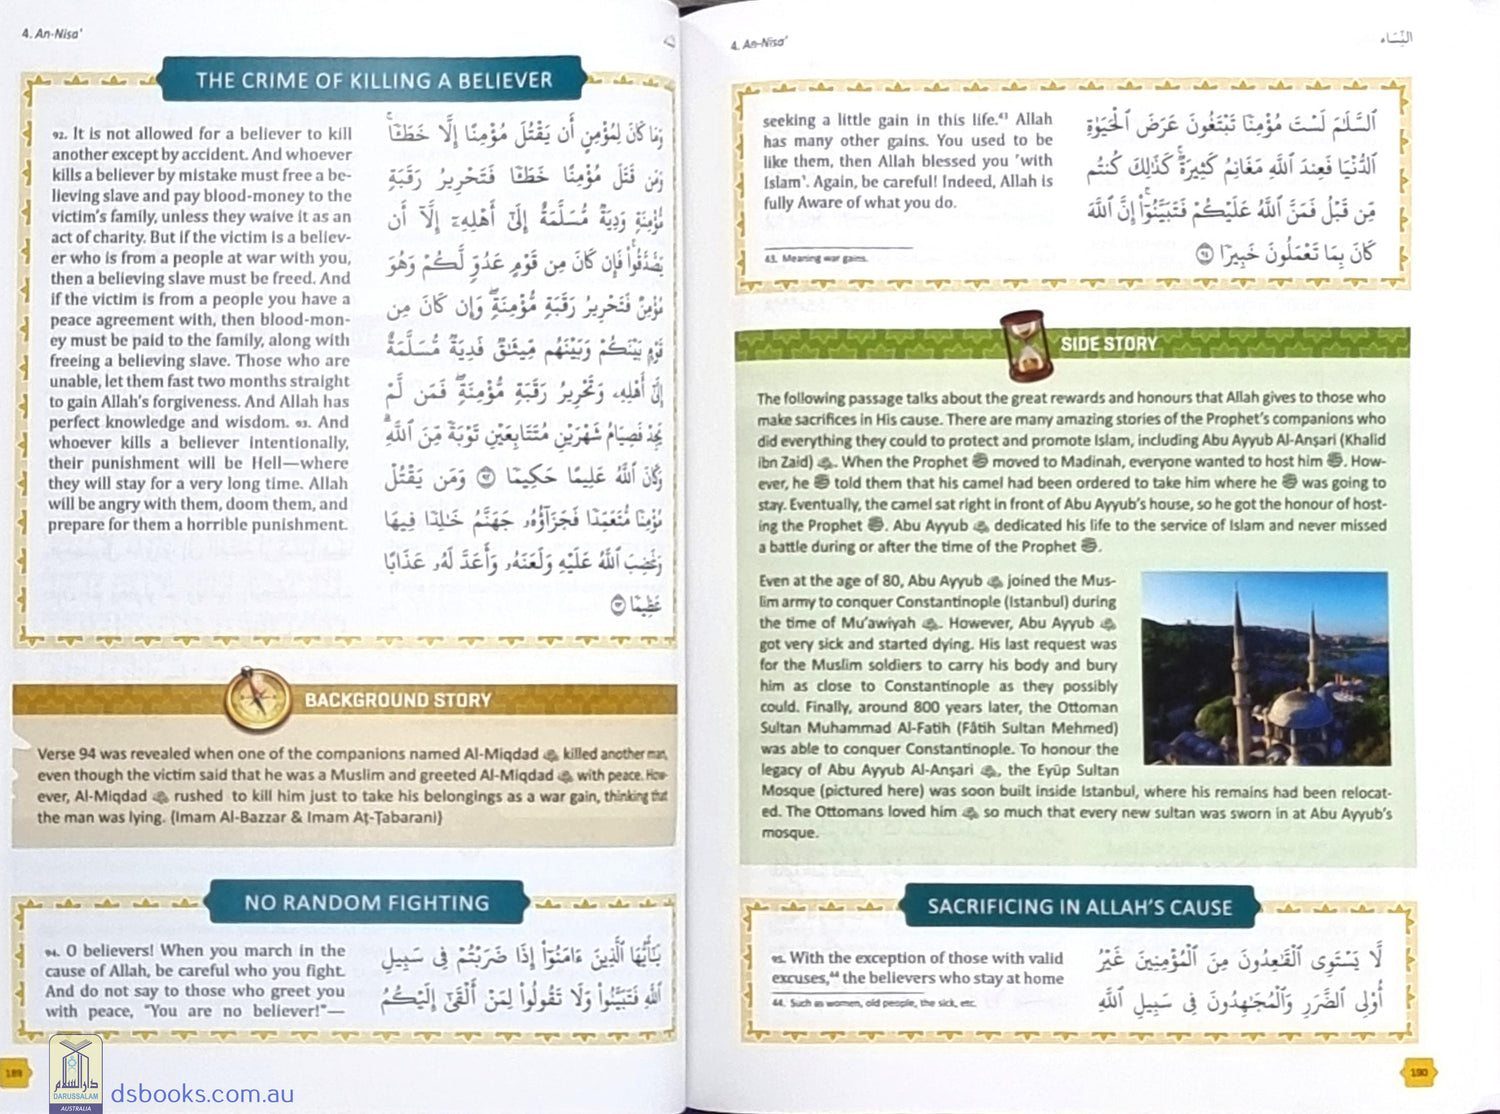 4. An-Nisa'
THE CRIME OF KILLING A BELIEVER
92. It is not allowed for a believer to kill
another except by accident. And whoever
kills a believer by mistake must free a be-
lieving slave and pay blood-money to the
victim's family, unless they waive it as an
act of charity. But if the victim is a believ-
er who is from a people at war with you,
then a believing slave must be freed. And
if the victim is from a people you have a
peace agreement with, then blood-mon-
ey must be paid to the family, along with
freeing a believing slave. Those who are
unable, let them fast two months straight
to gain Allah's forgiveness. And Allah has
perfect knowledge and wisdom. 93. And
whoever kills a believer intentionally,
their punishment will be Hell—where
they will stay for a very long time. Allah
will be angry with them, doom them, and
prepare for them a horrible punishment.
وَمَا كَانَ لِمُؤْمِنٍ أَن يَقْتُلَ مُؤْمِنًا إِلَّا خَطَـًٔا ۚ
وَمَن قَتَلَ مُؤْمِنًا خَطَـًٔا فَتَحْرِيرُ رَقَبَةٍ
مُّؤْمِنَةٍ وَدِيَةٌ مُّسَلَّمَةٌ إِلَىٰٓ أَهْلِهِۦٓ إِلَّآ أَن
يَصَّدَّقُوا۟ ۚ فَإِن كَانَ مِن قَوْمٍ عَدُوٍّ لَّكُمْ وَهُوَ
مُؤْمِنٌ فَتَحْرِيرُ رَقَبَةٍ مُّؤْمِنَةٍ ۖ وَإِن كَانَ مِن
قَوْمٍۭ بَيْنَكُمْ وَبَيْنَهُم مِّيثَـٰقٌ فَدِيَةٌ مُّسَلَّمَةٌ
إِلَىٰٓ أَهْلِهِۦ وَتَحْرِيرُ رَقَبَةٍ مُّؤْمِنَةٍ ۖ فَمَن لَّمْ
يَجِدْ فَصِيَامُ شَهْرَيْنِ مُتَتَابِعَيْنِ تَوْبَةً مِّنَ ٱللَّهِ ۗ
وَكَانَ ٱللَّهُ عَلِيمًا حَكِيمًا ٩٢ وَمَن يَقْتُلْ
مُؤْمِنًا مُّتَعَمِّدًا فَجَزَآؤُهُۥ جَهَنَّمُ خَـٰلِدًا فِيهَا
وَغَضِبَ ٱللَّهُ عَلَيْهِ وَلَعَنَهُۥ وَأَعَدَّ لَهُۥ عَذَابًا
عَظِيمًا ٩٣
BACKGROUND STORY
Verse 94 was revealed when one of the companions named Al-Miqdad killed another man,
even though the victim said that he was a Muslim and greeted Al-Miqdad with peace. How-
ever, Al-Miqdad rushed to kill him just to take his belongings as a war gain, thinking that
the man was lying. {Imam Al-Bazzar & Imam Aṭ-Ṭabarani}
NO RANDOM FIGHTING
94. O believers! When you march in the
cause of Allah, be careful who you fight.
And do not say to those who greet you
with peace, "You are no believer!"—
يَـٰٓأَيُّهَا ٱلَّذِينَ ءَامَنُوٓا۟ إِذَا ضَرَبْتُمْ فِى سَبِيلِ
ٱللَّهِ فَتَبَيَّنُوا۟ وَلَا تَقُولُوا۟ لِمَنْ أَلْقَىٰٓ إِلَيْكُمُ
189
دار السلام
DARUSSALAM
AUSTRALIA
dsbooks.com.au
4. An-Nisa'
النِّسَاء
seeking a little gain in this life.⁴³ Allah
has many other gains. You used to be
like them, then Allah blessed you ˹with
Islam˺. Again, be careful! Indeed, Allah is
fully Aware of what you do.
43. Meaning war gains.
ٱلسَّلَـٰمَ لَسْتَ مُؤْمِنًا تَبْتَغُونَ عَرَضَ ٱلْحَيَوٰةِ
ٱلدُّنْيَا فَعِندَ ٱللَّهِ مَغَانِمُ كَثِيرَةٌ ۚ كَذَٰلِكَ كُنتُم
مِّن قَبْلُ فَمَنَّ ٱللَّهُ عَلَيْكُمْ فَتَبَيَّنُوٓا۟ ۚ إِنَّ ٱللَّهَ
كَانَ بِمَا تَعْمَلُونَ خَبِيرًا ٩٤
SIDE STORY
The following passage talks about the great rewards and honours that Allah gives to those who
make sacrifices in His cause. There are many amazing stories of the Prophet's companions who
did everything they could to protect and promote Islam, including Abu Ayyub Al-Anṣari (Khalid
ibn Zaid) . When the Prophet ﷺ moved to Madinah, everyone wanted to host him ﷺ. How-
ever, he ﷺ told them that his camel had been ordered to take him where he ﷺ was going to
stay. Eventually, the camel sat right in front of Abu Ayyub's house, so he got the honour of host-
ing the Prophet ﷺ. Abu Ayyub dedicated his life to the service of Islam and never missed
a battle during or after the time of the Prophet ﷺ.
Even at the age of 80, Abu Ayyub joined the Mus-
lim army to conquer Constantinople (Istanbul) during
the time of Mu'awiyah . However, Abu Ayyub
got very sick and started dying. His last request was
for the Muslim soldiers to carry his body and bury
him as close to Constantinople as they possibly
could. Finally, around 800 years later, the Ottoman
Sultan Muhammad Al-Fatih (Fâtih Sultan Mehmed)
was able to conquer Constantinople. To honour the
legacy of Abu Ayyub Al-Anṣari , the Eyûp Sultan
Mosque (pictured here) was soon built inside Istanbul, where his remains had been relocat-
ed. The Ottomans loved him so much that every new sultan was sworn in at Abu Ayyub's
mosque.
SACRIFICING IN ALLAH'S CAUSE
95. With the exception of those with valid
excuses,⁴⁴ the believers who stay at home
44. Such as women, old people, the sick, etc.
لَّا يَسْتَوِى ٱلْقَـٰعِدُونَ مِنَ ٱلْمُؤْمِنِينَ غَيْرُ
أُو۟لِى ٱلضَّرَرِ وَٱلْمُجَـٰهِدُونَ فِى سَبِيلِ ٱللَّهِ
190